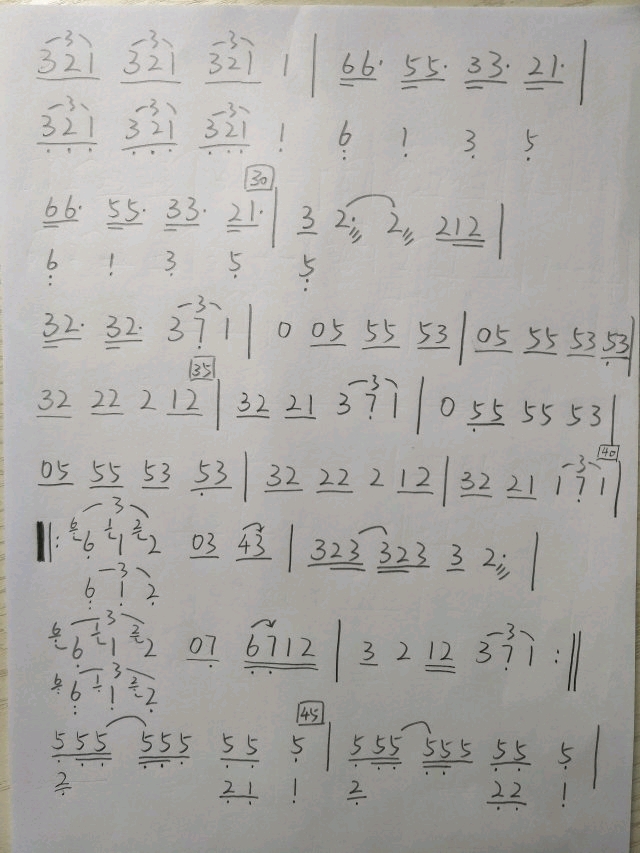 3 3 3
321 321 321 1 | 66· 55· 33· 21· |
3 3 3
321 321 321 1 6 1 3 5
30
66· 55· 33· 21· | 3 2· 2 212 |
6 1 3 5 5
3
32· 32· 371 | 0 05 55 53 | 05 55 53 53
35 3
32 22 2 12 | 32 21 371 | 0 55 55 53 |
40
3
05 55 53 53 | 32 22 2 12 | 32 21 171 |
3
6 1 2
|: 6 1 2 03 43 | 323 323 3 2· |
3
6 1 2
3
6 1 2 3
6 1 2 07 6712 | 3 2 12 371 :||
3
6 1 2
6 1 2
45
555 555 55 5 | 555 555 55 5 |
2 21 1 2 22 1